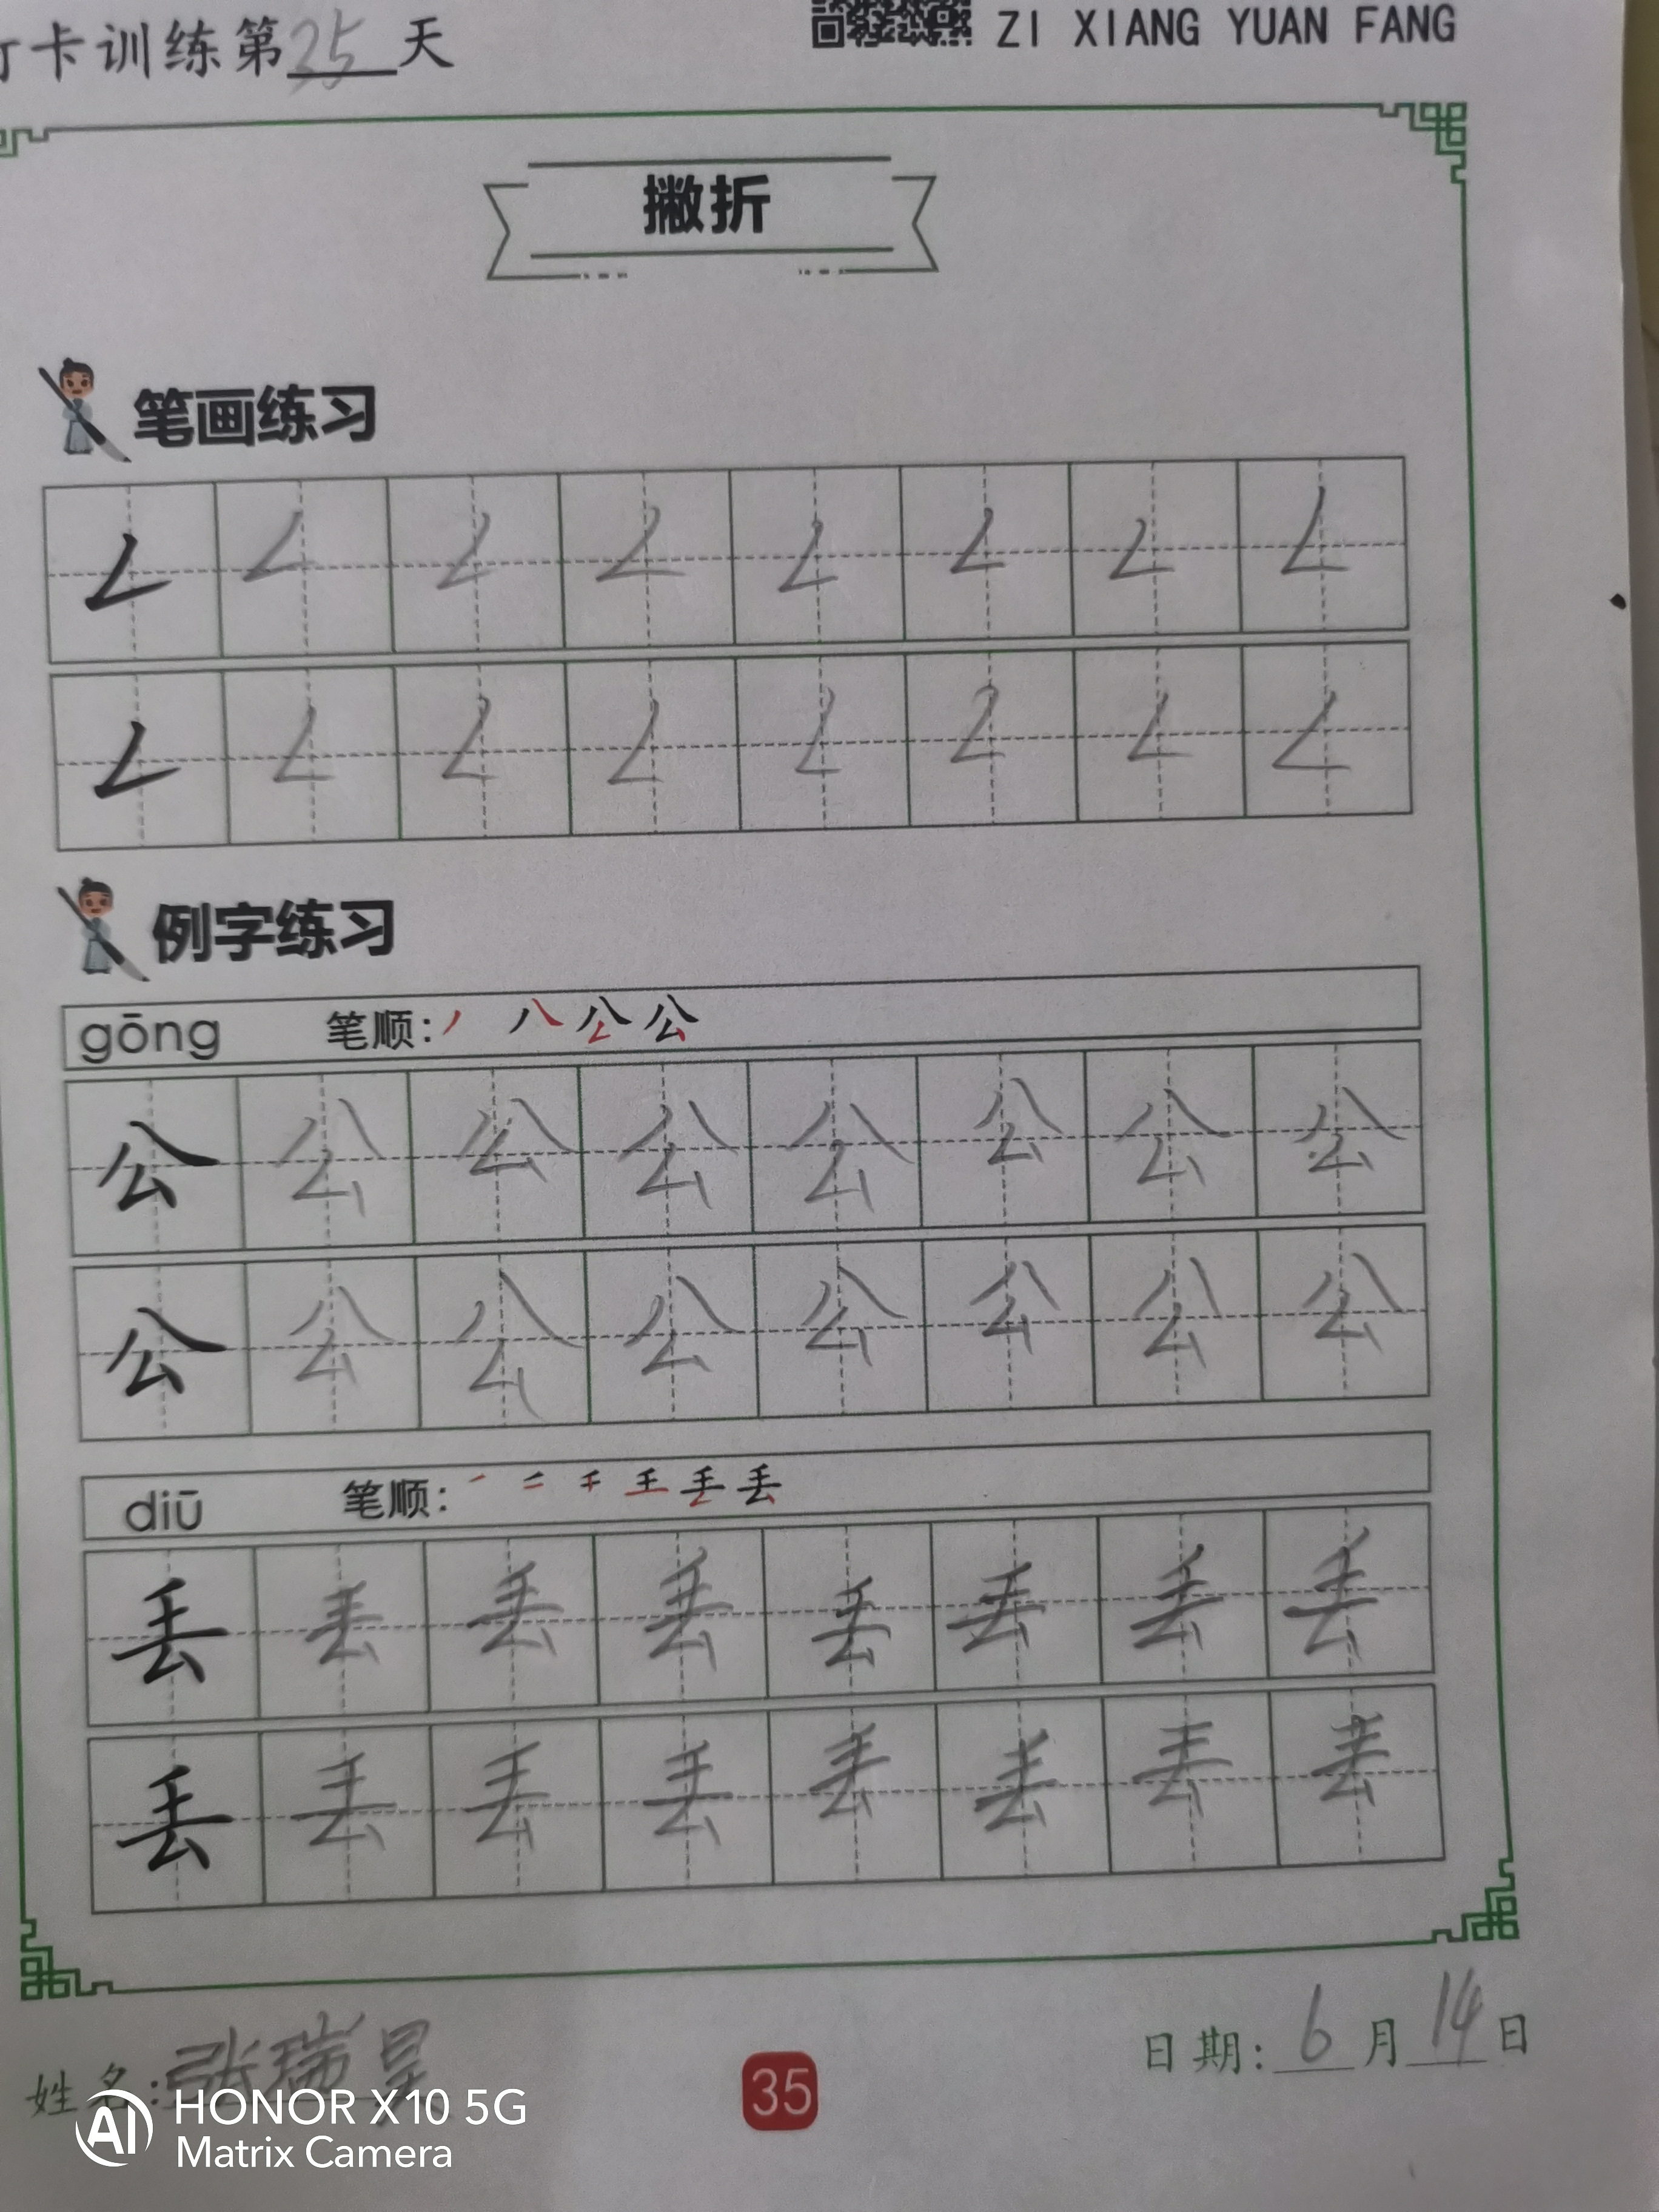 打卡训练第25天
ZI XIANG YUAN FANG
撇折
笔画练习
例字练习
gōng 笔顺: 丿 八 公 公
公 公 公 公 公 公 公 公
公 公 公 公 公 公 公 公
diū 笔顺:
丢 丢 丢 丢 丢 丢 丢 丢
丢 丢 丢 丢 丢 丢 丢 丢
姓名: 张瑞昊
35
日期: 6月14日
AI HONOR X10 5G
Matrix Camera